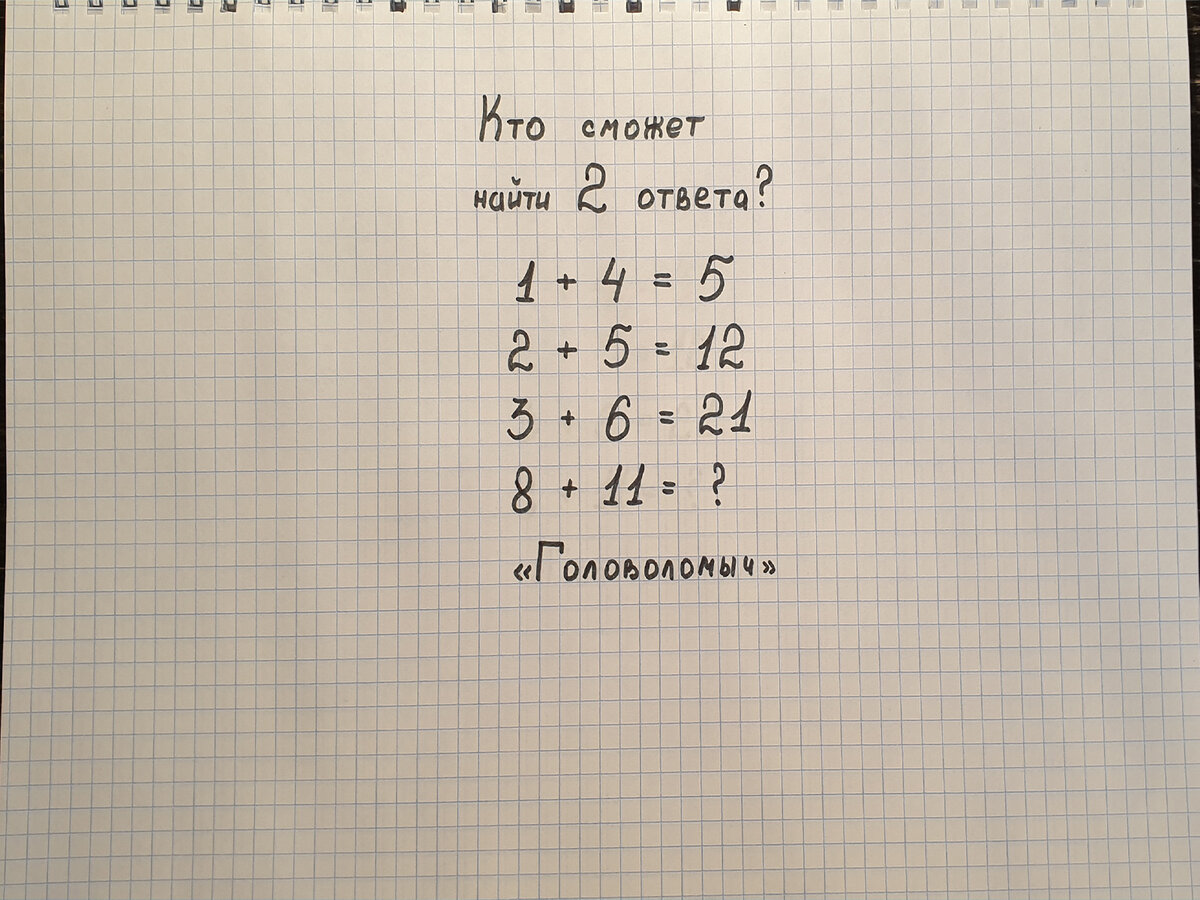 Кто сможет
найти 2 ответа?
1 + 4 = 5
2 + 5 = 12
3 + 6 = 21
8 + 11 = ?
«Головоломыч»